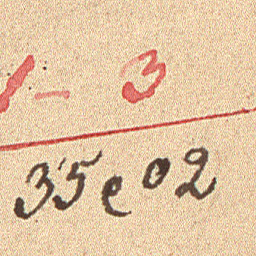 1 - 3
35e02